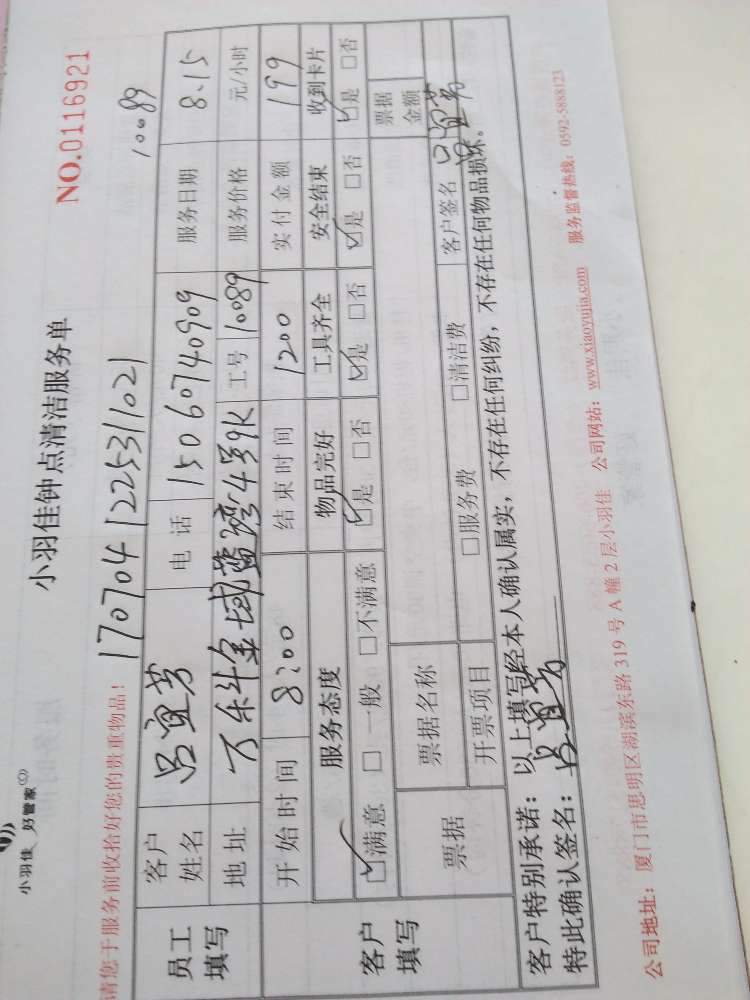 小羽佳 好管家
小羽佳钟点清洁服务单
NO.0116921
请您于服务前收拾好您的贵重物品！ 170704122531021 10089
员工填写 客户姓名 吕宜芳 电话 15060740909 服务日期 8.15
地址 万科金域蓝湾4号9K 工号 10089 服务价格 元/小时
客户填写 开始时间 8:00 结束时间 1200 实付金额 199
服务态度 物品完好 工具齐全 安全结束 收到卡片
☑满意 □一般 □不满意 ☑是 □否 ☑是 □否 ☑是 □否 ☑是 □否
票据 票据名称 票据金额
开票项目 □服务费 □清洁费 客户签名 吕宜芳
客户特别承诺：以上填写经本人确认属实，不存在任何纠纷，不存在任何物品损坏。
特此确认签名：吕宜芳
公司地址：厦门市思明区湖滨东路 319 号 A 幢 2 层小羽佳 公司网站：www.xiaoyujia.com 服务监督热线：0592-5888123